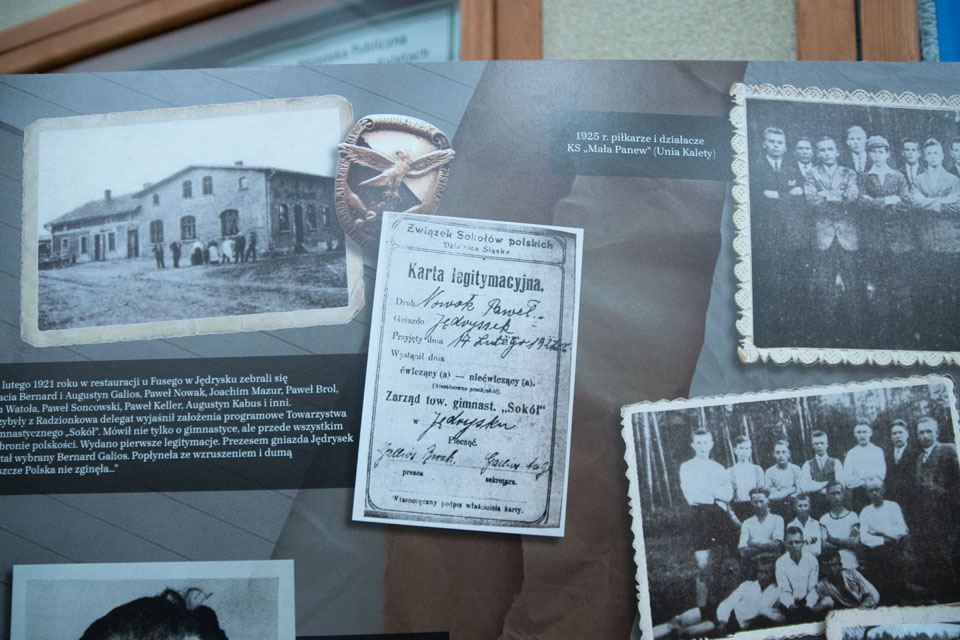 Publiczna
1925 r. piłkarze i działacze
KS „Mała Panew” (Unia Kalety)
Związek Sokołów polskich
Dzielnica Śląska
Karta legitymacyjna.
Druh Nowak Paweł
Gniazdo Jędryssek
Przyjęty dnia 14 Lutego
Wystąpił dnia
ćwiczący (a) — niećwiczący (a).
Zarząd tow. gimnast. „Sokół”
w Jędrysku
Pieczęć.
prezes sekretarz.
Własnoręczny podpis właściciela karty.
lutego 1921 roku w restauracji u Fusego w Jędrysku zebrali się
acia Bernard i Augustyn Galios, Paweł Nowak, Joachim Mazur, Paweł Brol,
n Watoła, Paweł Soncowski, Paweł Keller, Augustyn Kabus i inni.
zybyły z Radzionkowa delegat wyjaśnił założenia programowe Towarzystwa
mnastycznego „Sokół”. Mówił nie tylko o gimnastyce, ale przede wszystkim
bronie polskości. Wydano pierwsze legitymacje. Prezesem gniazda Jędrysek
tał wybrany Bernard Galios. Popłynęła ze wzruszeniem i dumą
szcze Polska nie zginęła...”